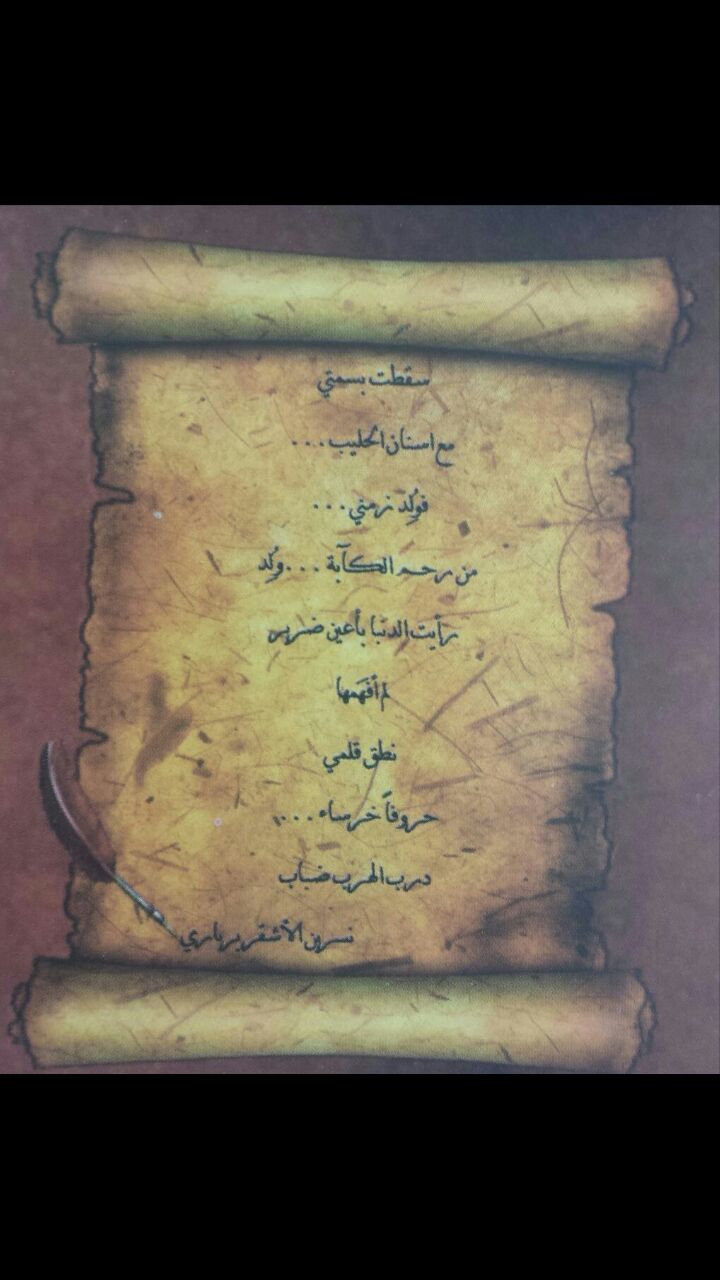 سقطت بسمتي
مع اسنان الحليب...
فوُلِد زمني...
من رحم الكآبة...وُلد
رأيت الدنيا بأعين ضرير
لم أفهَمها
نطق قلمي
حروفاً خرساء....
درب الهرب ضباب
نسرين الأشقر برباري